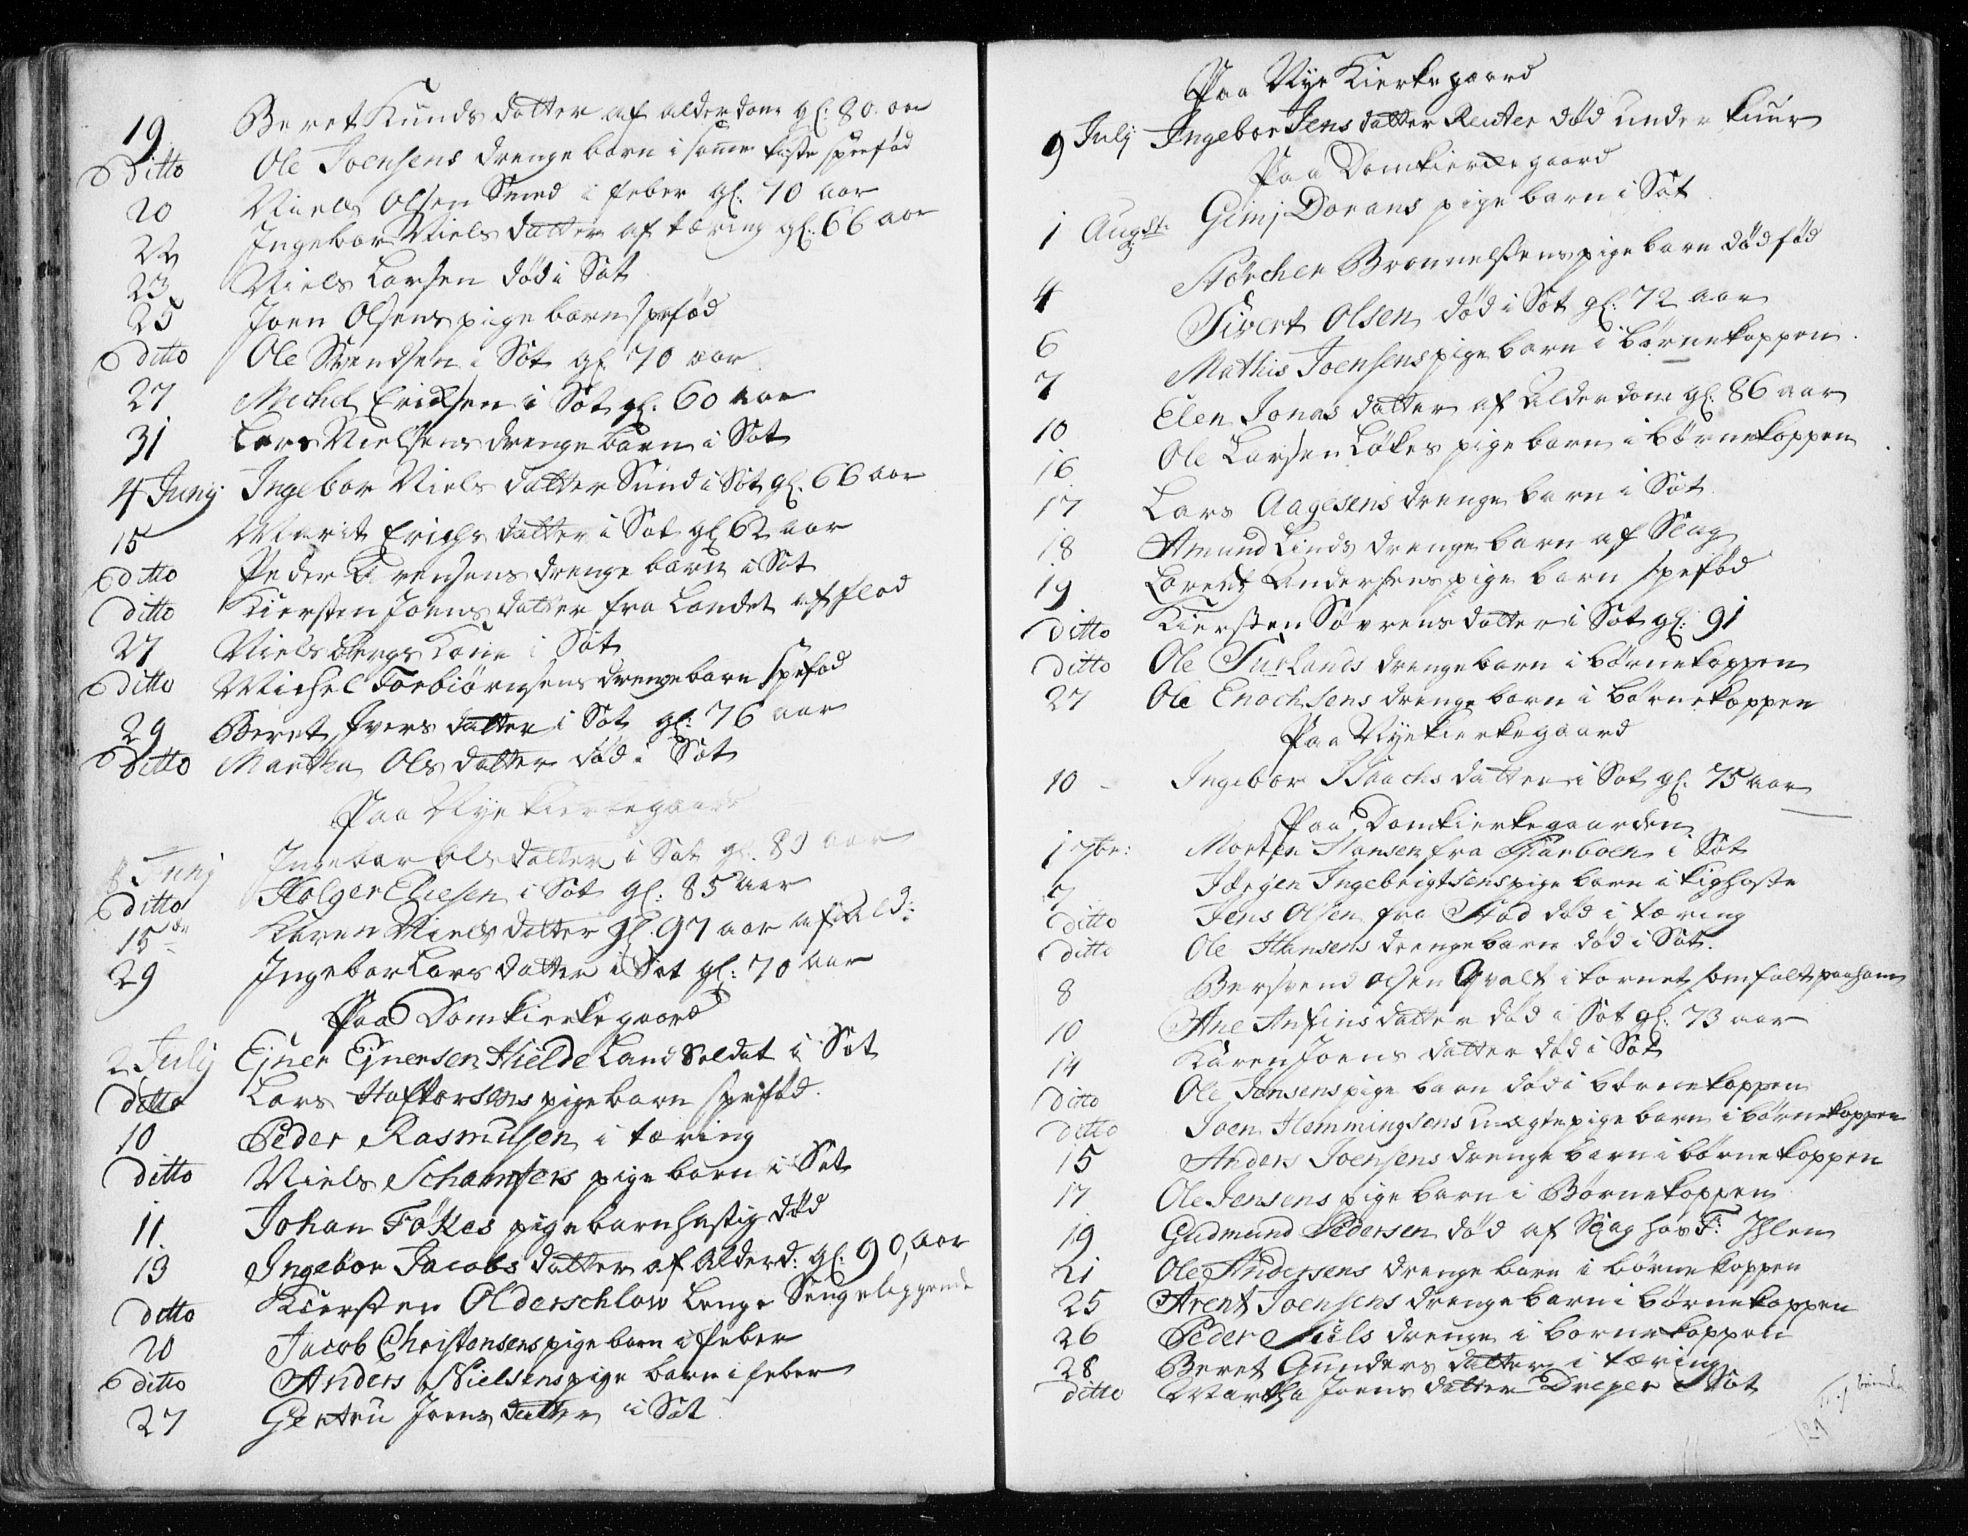 19 Beret Knuds datter af alderdom gl: 80. aar
Ditto Ole Joensens drengebarn i samme kiste spefød
20 Niels Olsen Smed i feber gl: 70 aar
22 Ingebor Niels datter af tæring gl: 66 aar
23 Niels Larsen død i Sot
25 Joen Olsens pige barn spefød
Ditto Ole Svendsen i Sot gl 70 aar
27 Michel Erichsen i Sot gl: 60 aar
31 Lars Nielsens drenge barn i Sot
4 Junij Ingebor Niels datter Sund i Sot gl. 66 aar
15 Marit Erichs datter i Sot gl 62 aar
ditto Peder drenge barn i Sot
ditto Kiersten Joens datter fra Landet af flod
27 Niels Bergs Kone i Sot
Ditto Michel Torbiørnsens drengebarn spefød
29 Beret Ivers datter i Sot gl: 76 aar
Ditto Martha Ols datter død i Sot
Paa Nye Kierkegaard
8 Junij Ingebor Ols datter i Sot gl. 83 aar
ditto Holger Eliesen i Sot gl: 85 aar
15de Karen Niels datter gl. 97 aar af ald:
29 Ingebor Lars datter i Sot gl: 70 aar
Paa Domkierkegaard
2 July Ejner Ejnersen Hielde Land Soldat i Sot
ditto Lars Haftorsens pigebarn spefød.
10 Peder Rasmusen i tæring
ditto Niels pige barn i Sot
11. Johan Fökes pigebarn hastig død
13 Ingebor Jacobs datter af Alderd: gl: 90, aar
ditto Kiersten Olderschlow Længe Sengeliggende
20 Jacob Christensens pige barn i feber
ditto Anders Nielsens pige barn i feber
27 Gertru Joens datter i Sot
Paa Nye Kierkegaard
9 July Ingebor Jens datter Reuter død under Kuur
Paa Domkierkegaard
1 Augst. Gimj Dorans pige barn i Sot
4 Störcher pige barn dødfød
6 Sivert Olsen død i Sot gl: 72 aar
7 Mathis Joensens pige barn i børnekoppen.
10 Elen Jonas datter af Alderdom gl: 86 aar
16 Ole Larsen Løkes pige barn i børnekoppen
17 Lars Aagesens drenge barn i Sot
18 Amund Linds drenge barn af Slag
19 Lorentz Andersens pige barn spefød
ditto Kiersten Søvrens datter i Sot gl: 91
ditto Ole Surlands drengebarn i børnekoppen
27 Ole Enochsens drenge barn i børnekoppen
Paa Nyekierkegaard
10 - Ingebor Isaachs datter i Sot gl: 75 aar
Paa Domkierkegaarden
1 7br: Morten Hansen fra i Sot
7 Jørgen Ingebrigtsens pige barn i kighoste
ditto Jens Olsen fra Stod død i tæring
ditto Ole Hansens drengebarn død i Sot.
8 Bersvend Olsen Qvalt i tornet som falt paa ham
10 Ane Anfins datter død i Sot gl: 73 aar
14 Karen Joens datter død i Sot
ditto Ole Jensens pige barn død i børnekoppen
ditto Joen Hemmingsens uægte pige barn i børnekoppen
15 Anders Joensens drenge barn i børnekoppen
17 Ole Jensens pige barn i Børnekoppen
19 Gudmund Pedersen død af Slag hos Ihlen
21 Ole Andersens drenge barn i børnekoppen
25 Arent Joensens drengebarn i børnekoppen
26 Peder Niels drenge i børnekoppen
28 Beret Gunders datter i tæring
ditto Martha Joens datter Dreyer i Sot